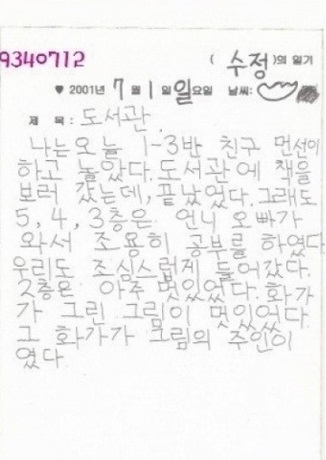 9340712
( 수정 )의 일기
♥ 2001년 7 월 1 일 일요일 날씨:
제 목 : 도서관
나는 오늘 1-3반 친구 먼성이
하고 놀았다. 도서관에 책을
보러 갔는데, 끝났었다. 그래도
5, 4, 3층은 언니 오빠가
와서 조용히 공부를 하였다.
우리도 조심스럽게 들어갔다.
2층은 아주 멋있었다. 화가
가 그린 그림이 멋있었다.
그 화가가 그림의 주인이
였다.